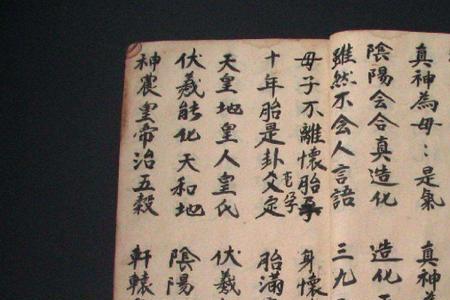 真神為母：是氣 真神
陰陽会合真造化 造化
雖然不会人言語 三九
母子不離懷胎孕 身懷
十年胎是卦爻定 胎滿
天皇地皇人皇氏 伏羲
伏羲能化天和地 陰陽
神農皇帝治五穀 軒轅